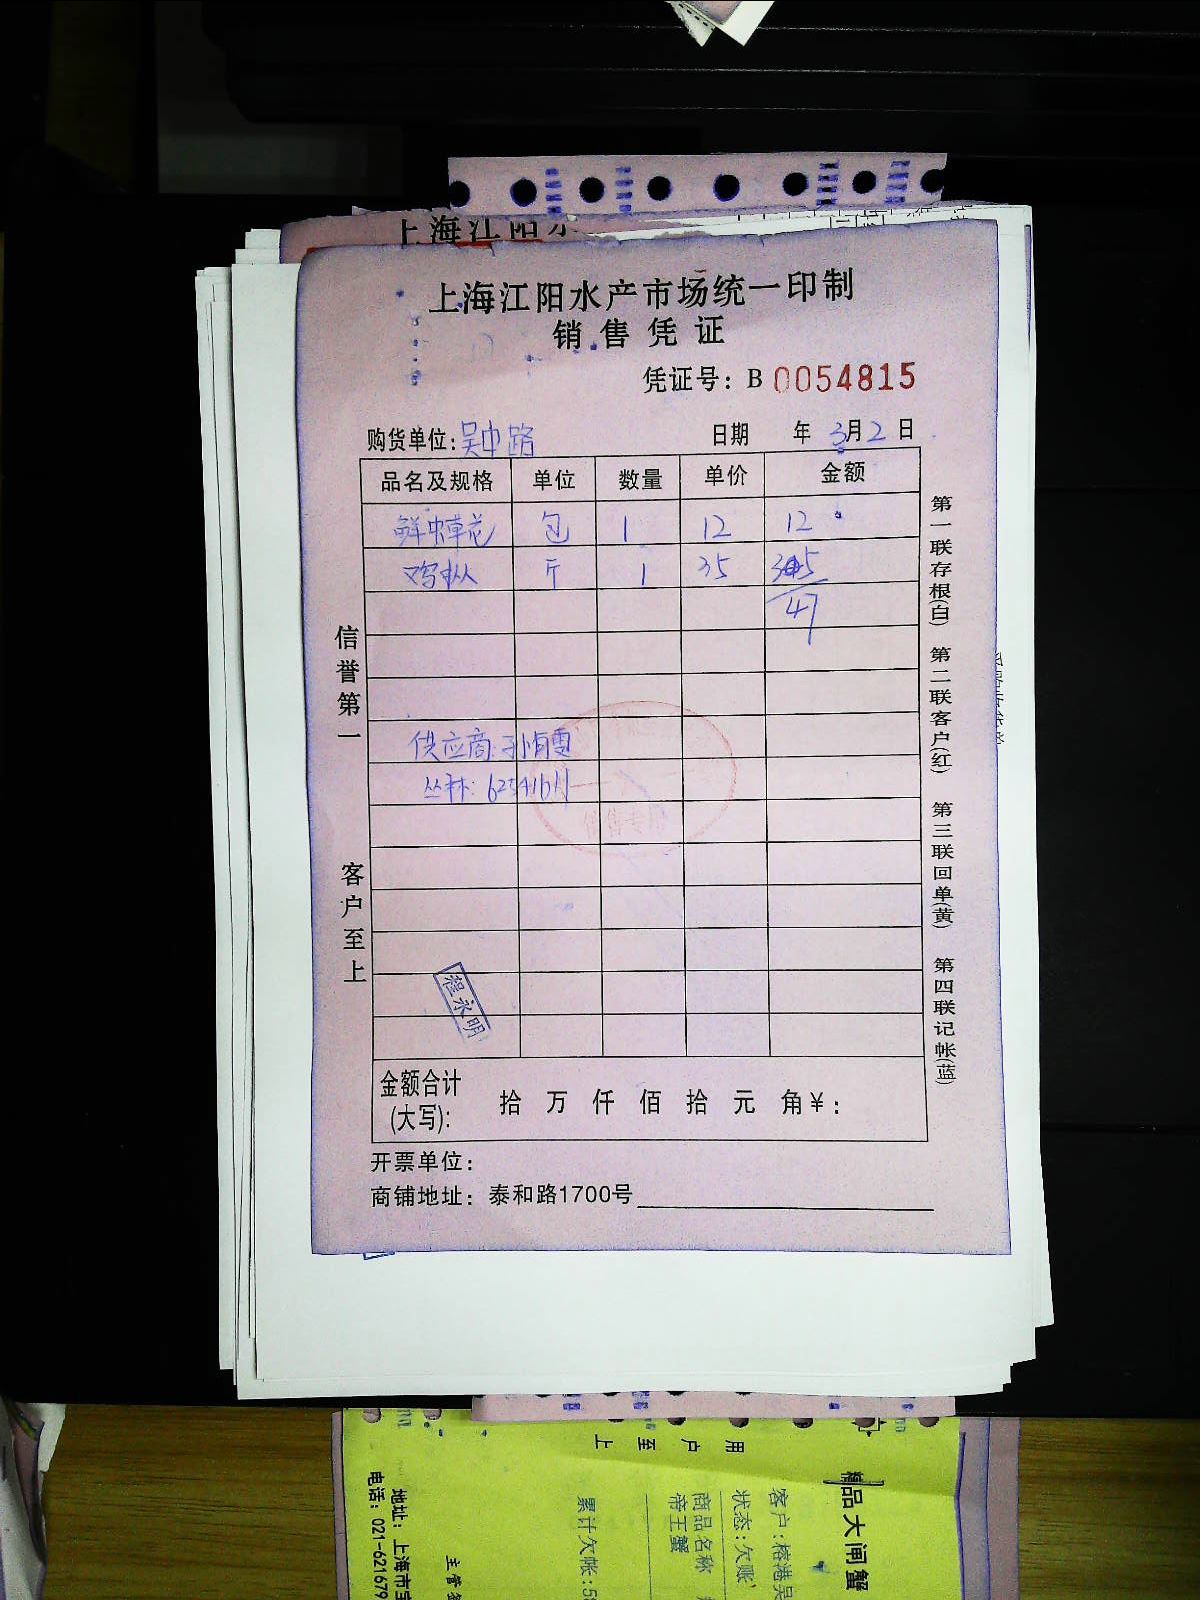 上海江阳水
上海江阳水产市场统一印制
销售凭证
凭证号：B 0054815
购货单位：吴中路 日期 年 3月2日
品名及规格 单位 数量 单价 金额
鲜虫草花 包 1 12 12
鸡枞 斤 1 35 35
47
供应商：孙有雪
丛林：
销售专用
程永明
金额合计
(大写)： 拾 万 仟 佰 拾 元 角¥：
开票单位：
商铺地址：泰和路1700号
信誉第一
客户至上
第一联存根(白) 第二联客户(红) 第三联回单(黄) 第四联记帐(蓝)
用户至上
品大闸蟹
客户：榕港吴
状态：欠账
商品名称
帝王蟹
累计欠帐：5
主管
地址：上海市宝
电话：021-621679